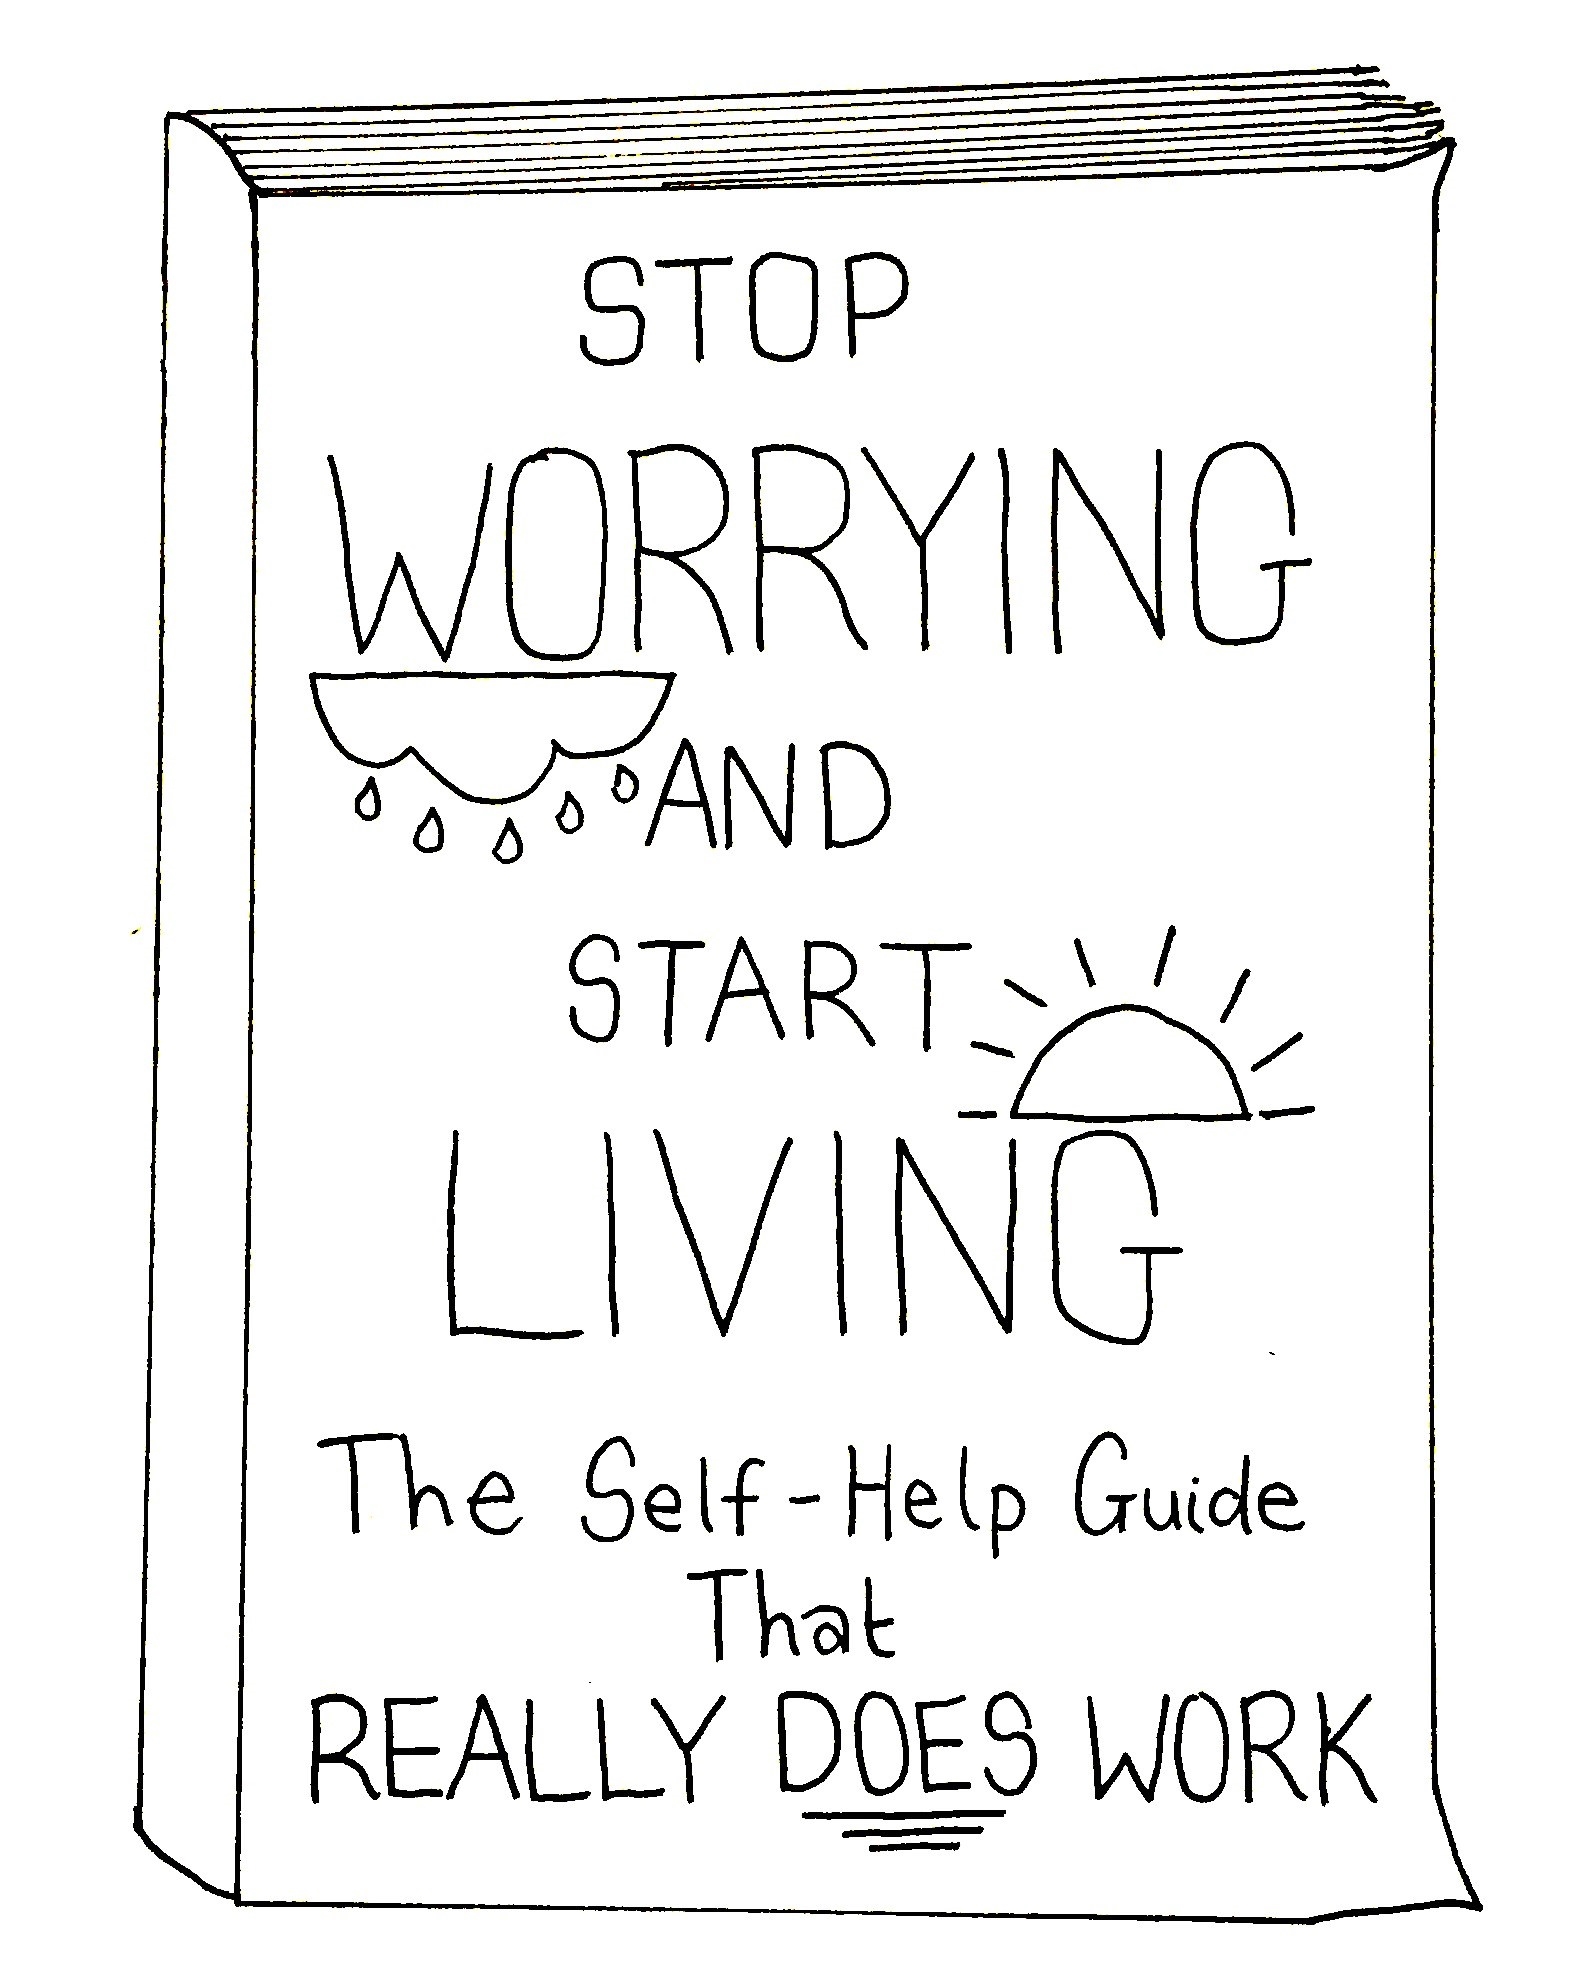 STOP
WORRYING
AND
START
LIVING
The Self-Help Guide
That
REALLY DOES WORK